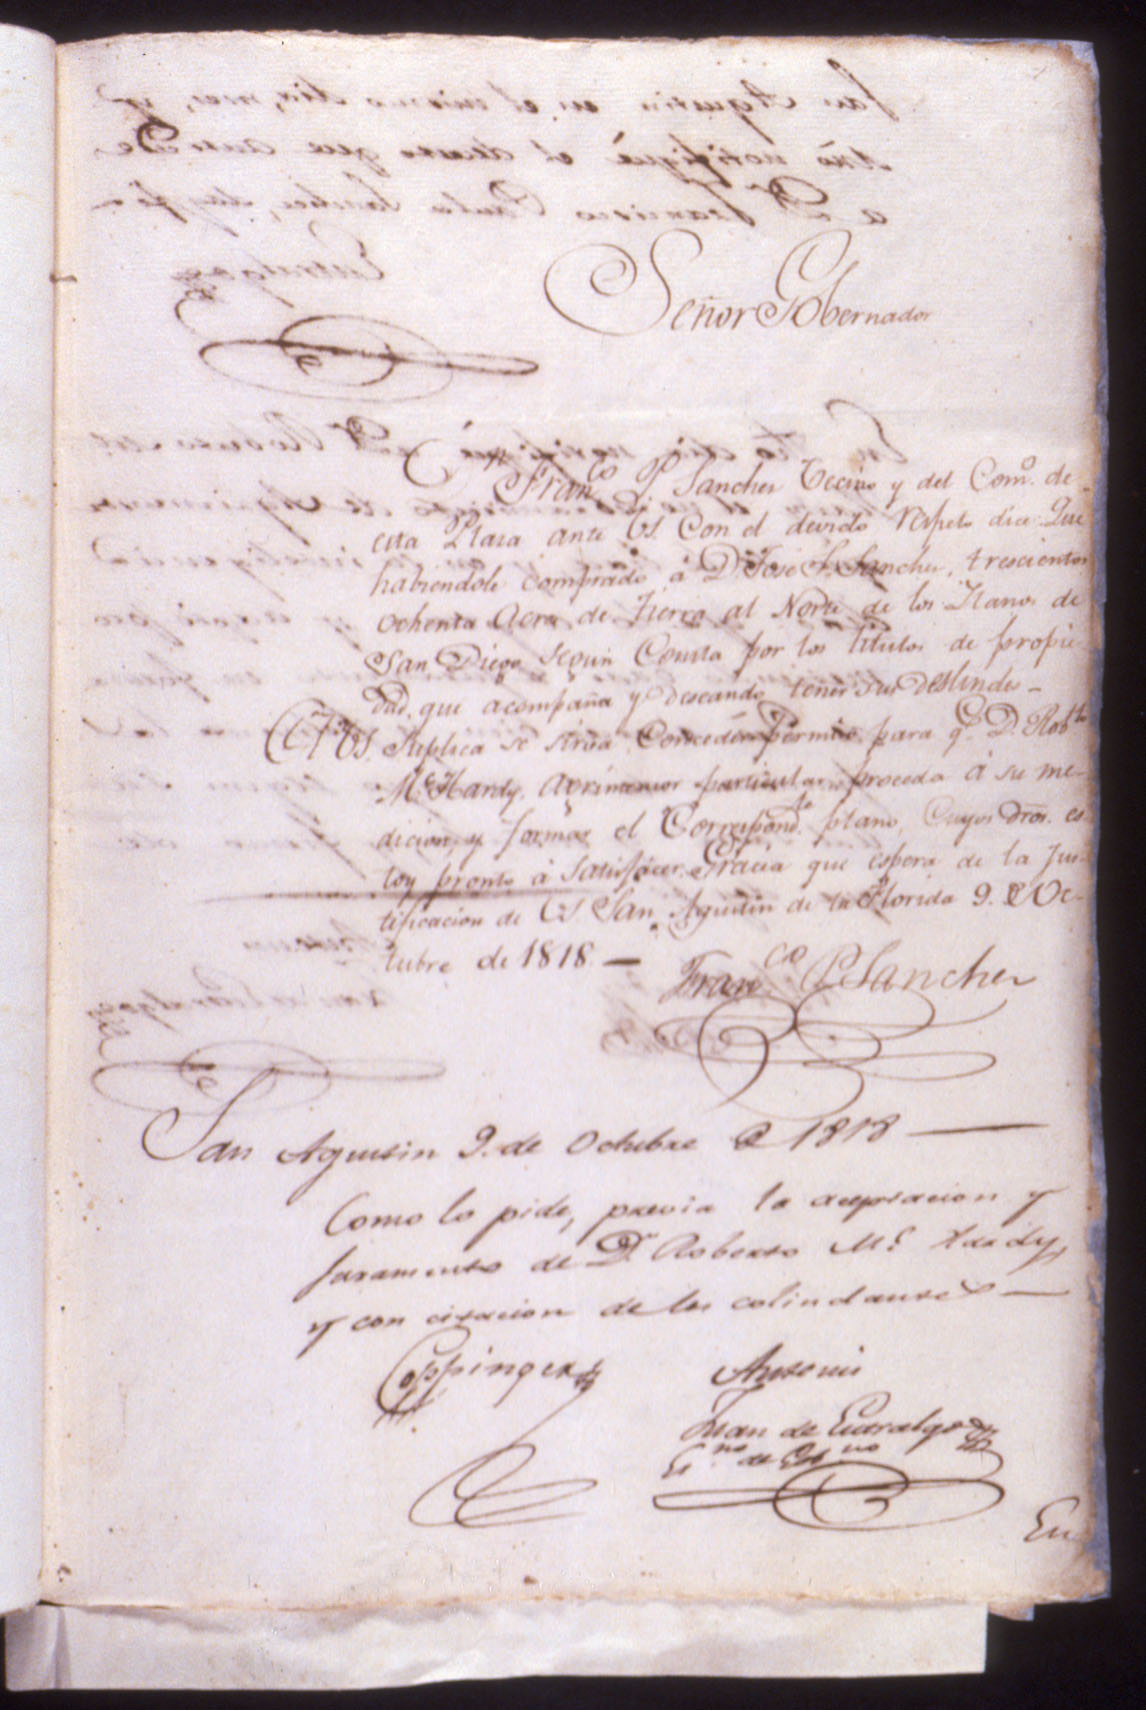 Señor Gobernador
Fran.co P Sanchez Vecino y del Com.o de
esta Plaza ante VS. Con el devido respeto dice: Que
habiendole comprado á D. Jose S. Sanchez, trescientos
ochenta Acres de tierra al Norte de los Llanos de
San Diego segun Consta por los titulos de propie
dad, que acompaña y deseando tener sus deslindes
A VS. Suplica se sirva Conceder Permiso para q.e D. Rob.to
Mc Hardy, Agrimensor particular proceda á su me-
dicion, y formar el Correspond.te plano, Cuyos dros. es-
toy pronto á Satisfacer. Gracia que espera de la Jus-
tificacion de VS. San Agustin de la Florida 9. de Oc-
tubre de 1818. —
Fran.co P Sanchez
San Agustin 9. de Octubre de 1818 —
Como lo pide, previa la aceptacion y
juramento de D.n Roberto Mc. Hardy,
y con citacion de los colindantes —
Coppinger
Antemi
Juan de Entralgo
Es.no de Gob.no
En